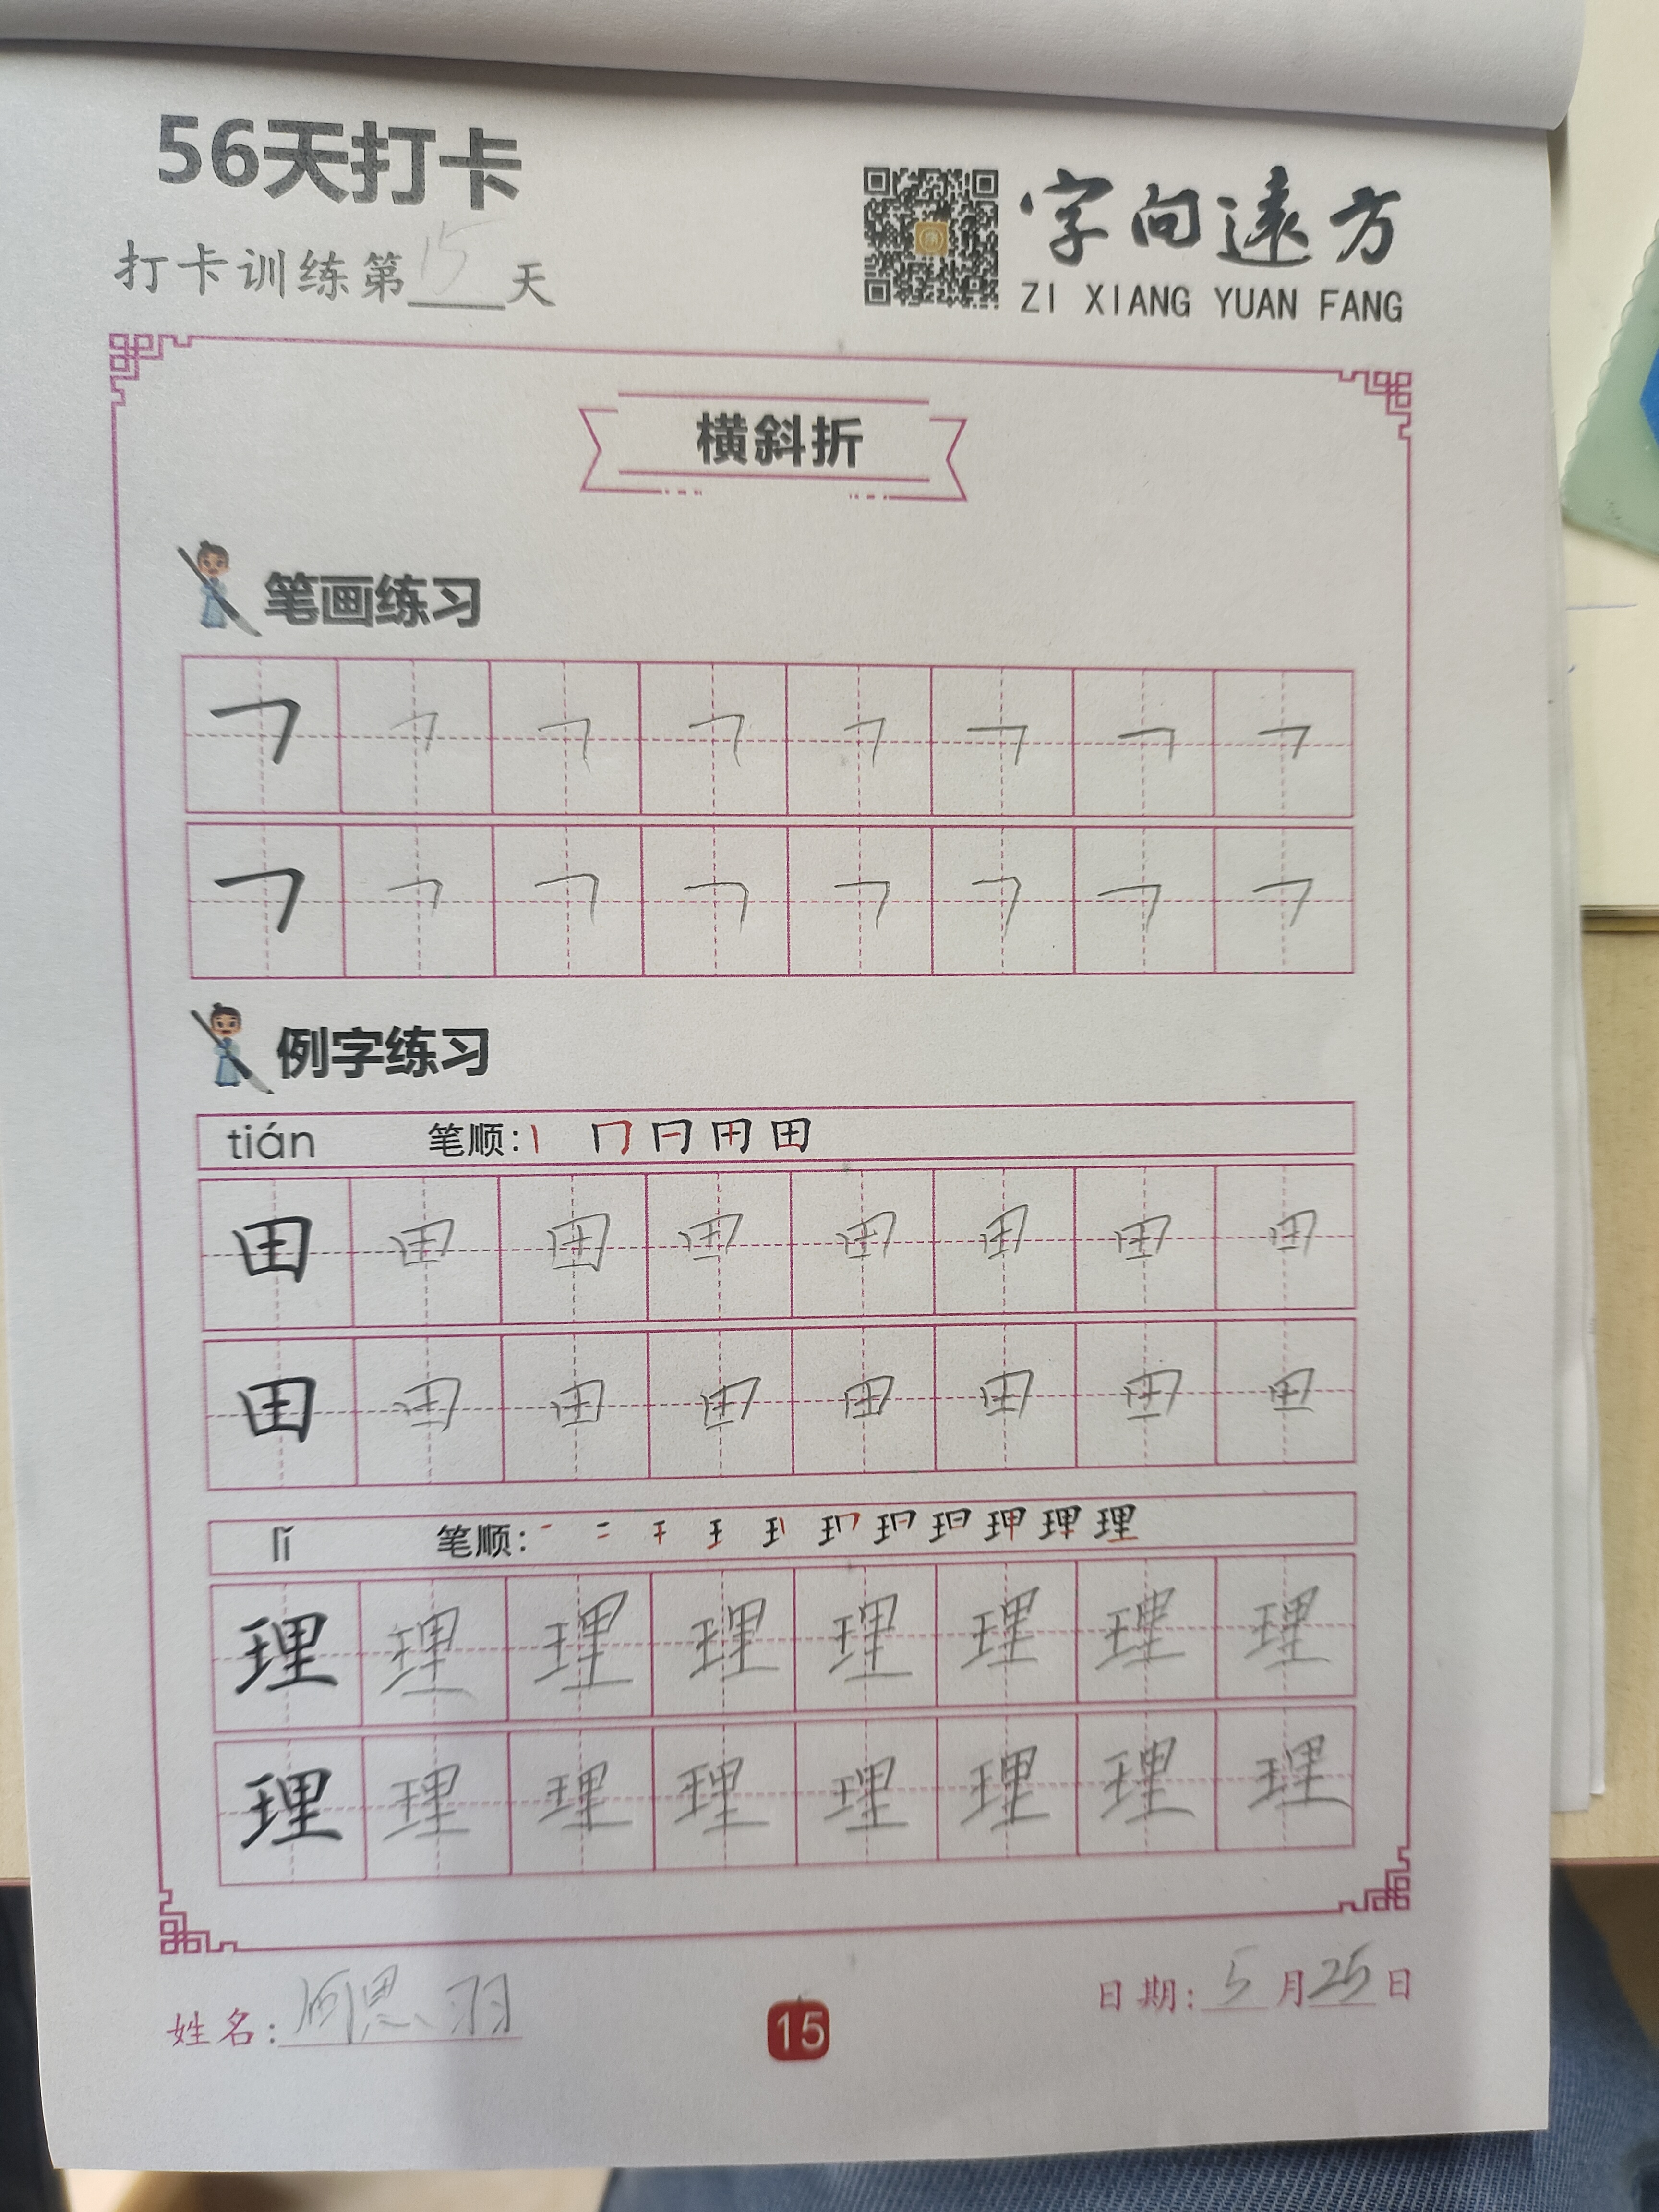 56天打卡
打卡训练第15天
字向远方
ZI XIANG YUAN FANG
横斜折
笔画练习
㇕ ㇕ ㇕ ㇕ ㇕ ㇕ ㇕ ㇕
㇕ ㇕ ㇕ ㇕ ㇕ ㇕ ㇕ ㇕
例字练习
tián 笔顺:
田 田 田 田 田 田 田 田
田 田 田 田 田 田 田 田
lǐ 笔顺:
理 理 理 理 理 理 理 理
理 理 理 理 理 理 理 理
姓名: 思羽
15
日期: 5月25日